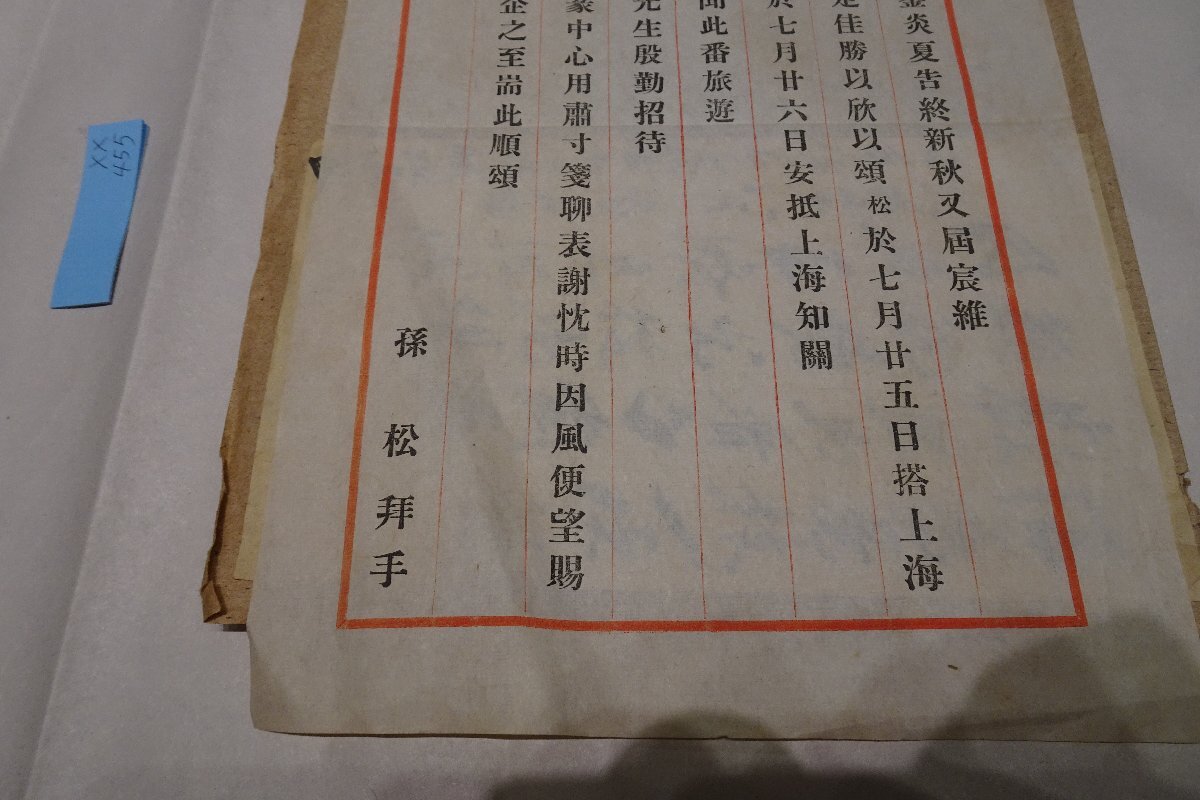 炎夏告終新秋又屆宸維
佳勝以欣以頌松於七月廿五日搭上海
於七月廿六日安抵上海知關
聞此番旅遊
先生殷勤招待
蒙中心用肅寸箋聊表謝忱時因風便望賜
企之至耑此順頌
孫松拜手
XX
455